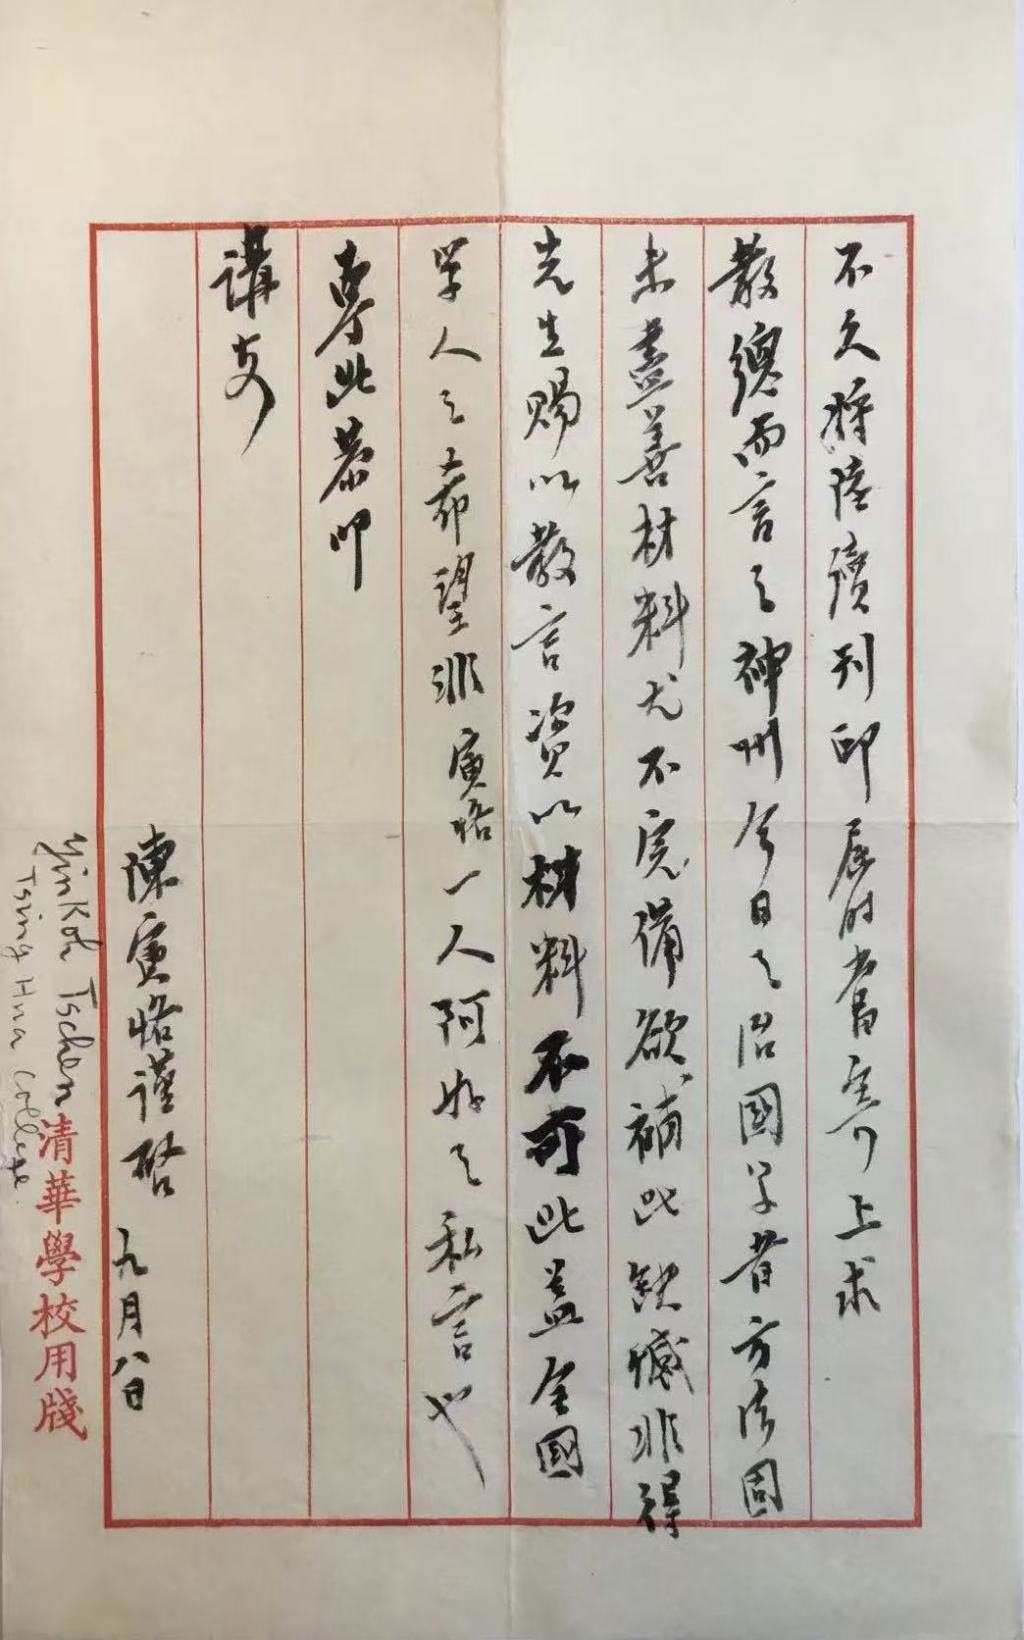 不久將陸續刊印屆时當寄上求
教總而言之神州今日之治國学者方法固
未盡善材料尤不完備欲補此缺憾非得
先生賜以教言資以材料不可此蓋全國
学人之希望非寅恪一人阿好之私言也
專此恭叩
講安
陳寅恪謹啓 九月八日
Yinkoh Tschen
Tsing Hua College.
清華學校用牋